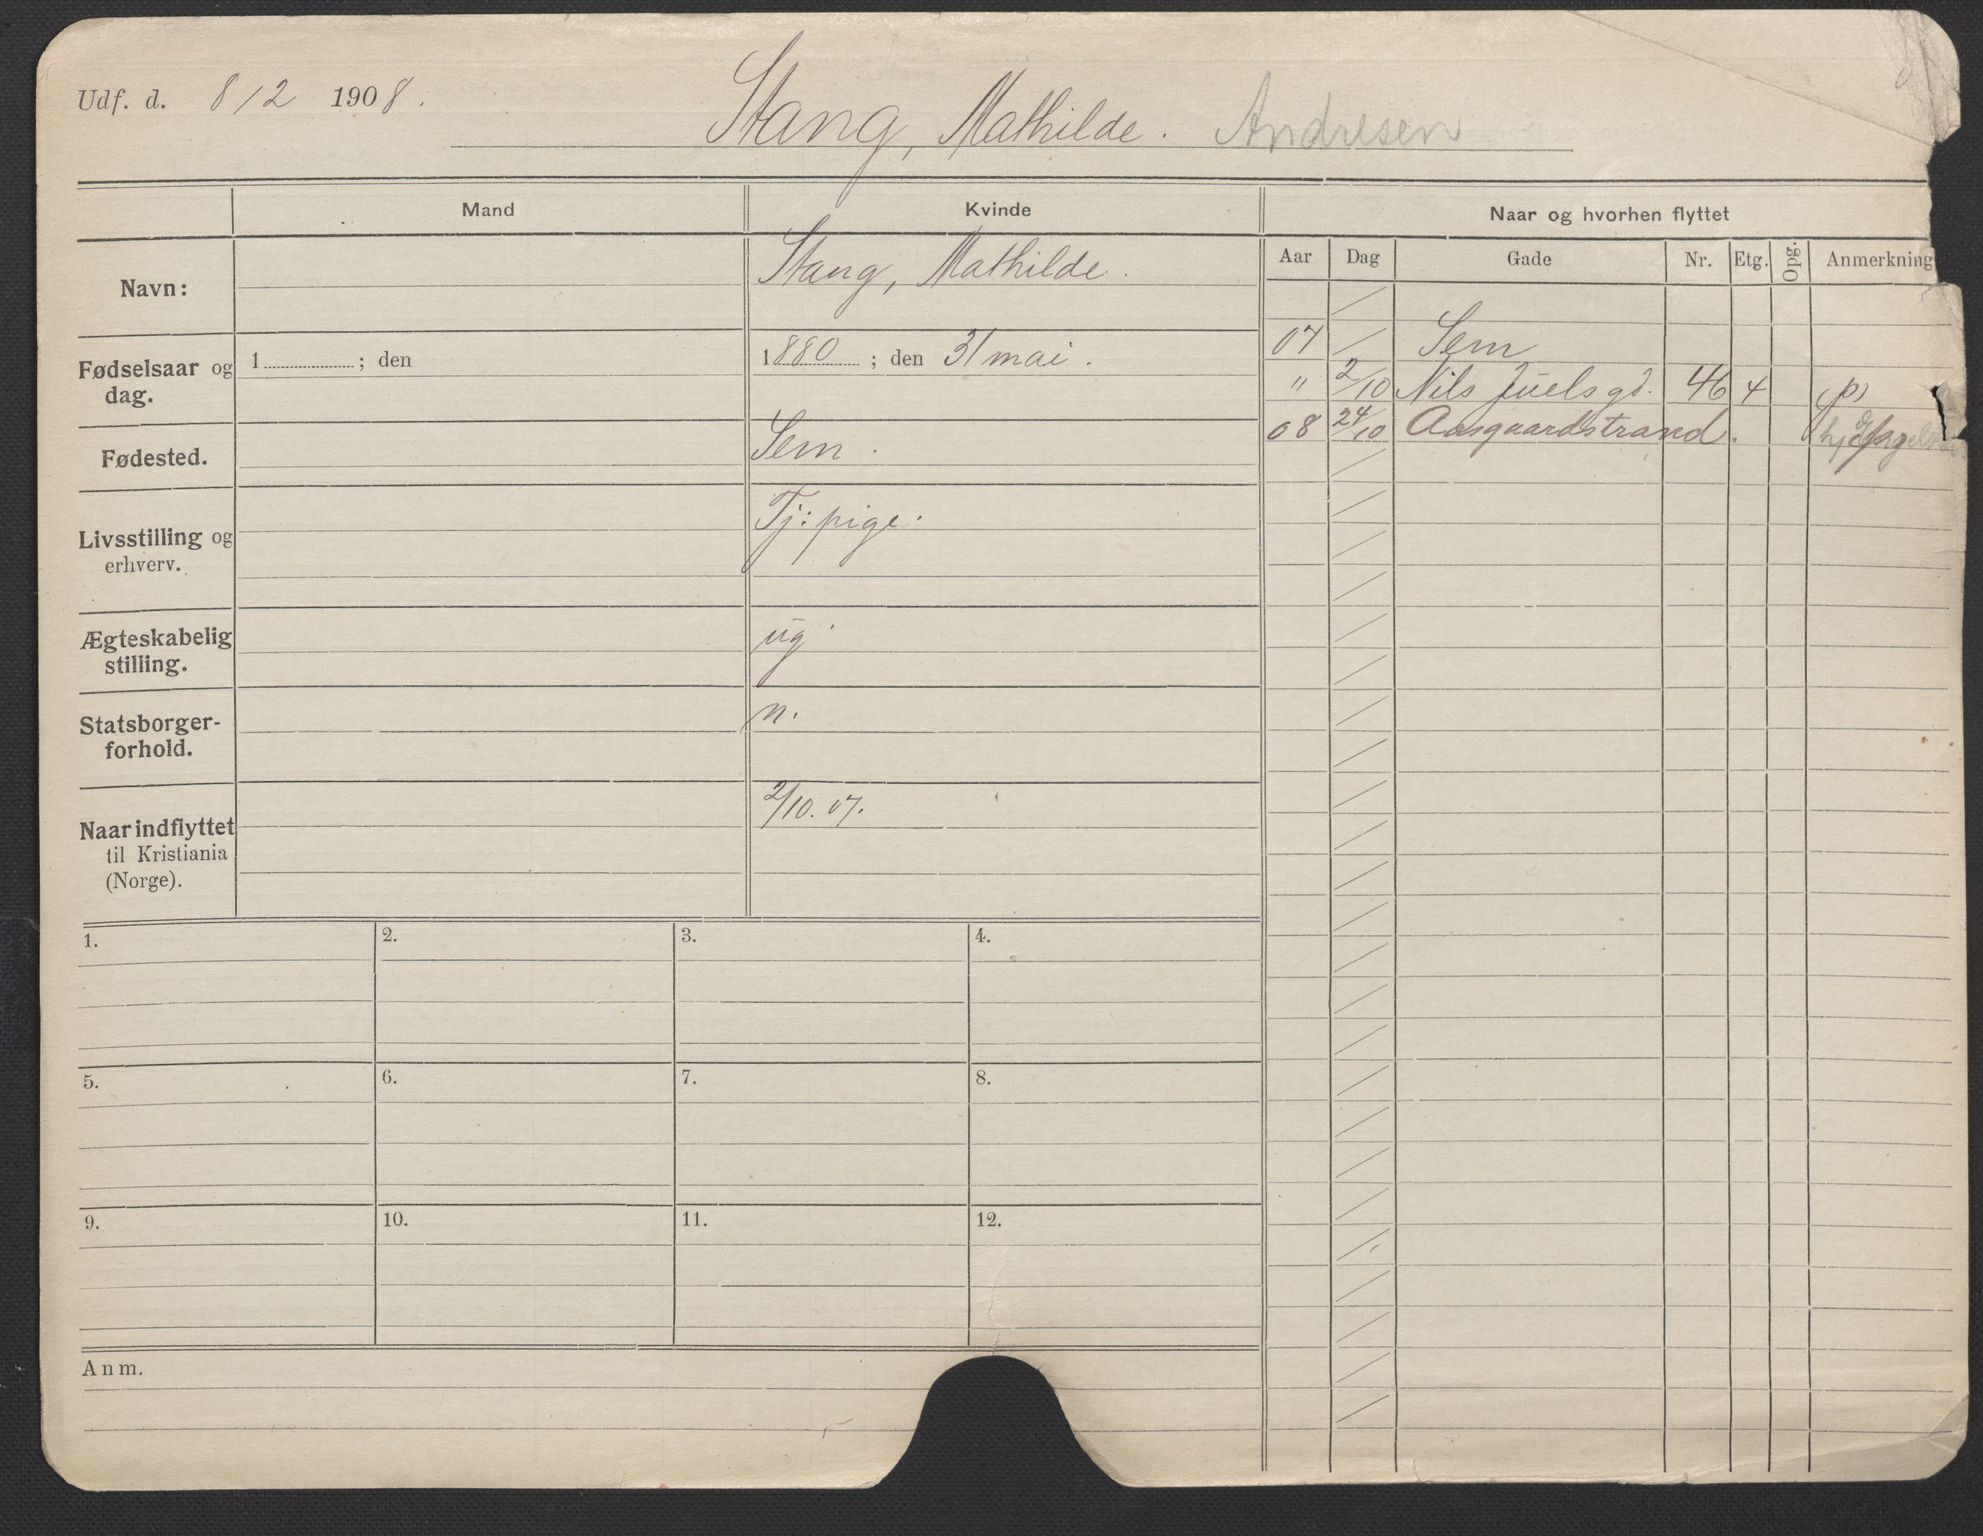 Udf. d. 8/2 1908.
Stang, Mathilde. Andresen
Mand
Kvinde
Naar og hvorhen flyttet
Aar Dag Gade Nr. Etg. Opg. Anmerkning
Navn:
Stang, Mathilde.
Fødselsaar og
dag.
1 ; den
1880 ; den 31 mai.
Fødested.
Sem.
Livsstilling og
erhverv.
Tj: pige.
Ægteskabelig
stilling.
ug
Statsborger-
forhold.
n.
Naar indflyttet
til Kristiania
(Norge).
2/10. 07.
07 Sem
" 2/10 Nils Juels gd. 46 4 p)
08 24/10 Aasgaardstrand.
1.
2.
3.
4.
5.
6.
7.
8.
9.
10.
11.
12.
Anm.